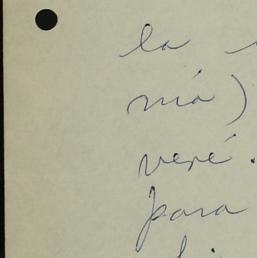 la
mía)
veré.
para